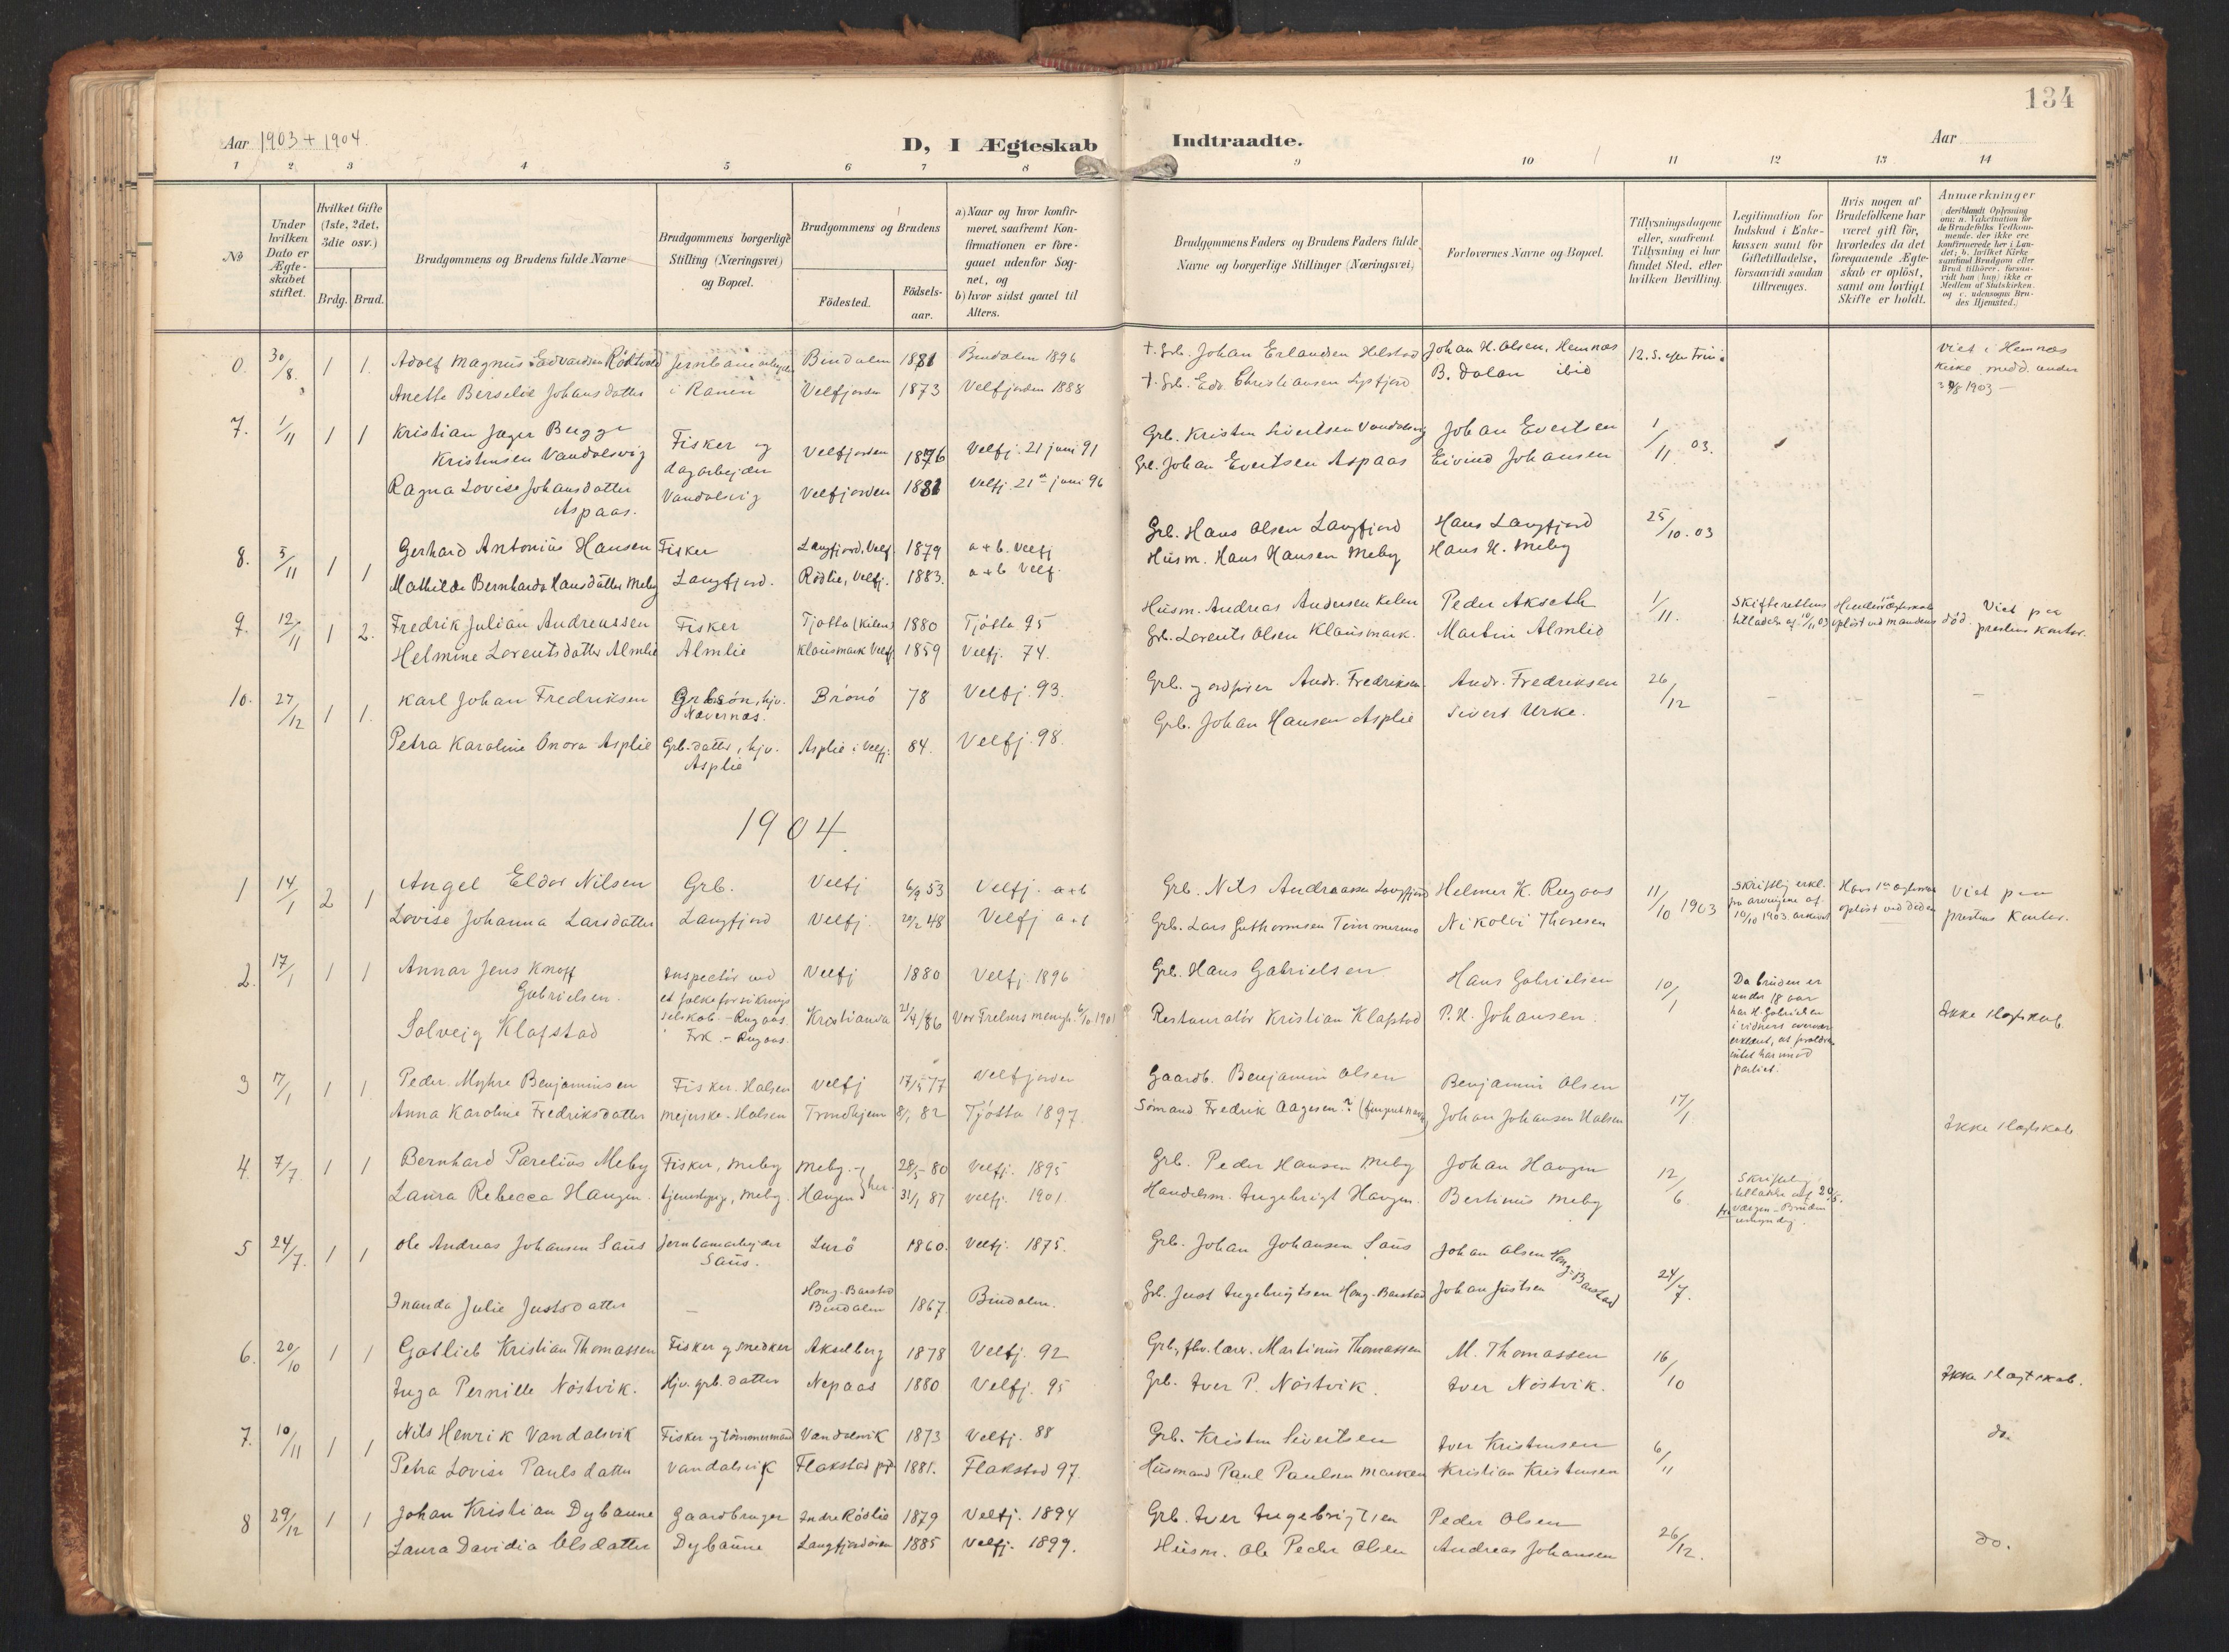 134
Aar 1903 + 1904.
D, I Ægteskab Indtraadte.
Aar
1 2 3 4 5 6 7 8 9 10 11 12 13 14
No
Under hvilken Dato er Ægteskabet stiftet.
Hvilket Gifte (1ste, 2det, 3die osv.)
Brdg. Brud.
Brudgommens og Brudens fulde Navne
Brudgommens borgerlige Stilling (Næringsvei) og Bopæl.
Brudgommens og Brudens
Födested.
Födselsaar.
a) Naar og hvor konfirmeret, saafremt Konfirmationen er foregaaet udenfor Sognet, og
b) hvor sidst gaaet til Alters.
Brudgommens Faders og Brudens Faders fulde Navne og borgerlige Stillinger (Næringsvei)
Forlovernes Navne og Bopæl.
Tillysningsdagene eller, saafremt Tillysning ei har fundet Sted, efter hvilken Bevilling.
Legitimation for Indskud i Enkekassen samt for Giftetilladelse, forsaavidt saadan tiltrænges.
Hvis nogen af Brudefolkene har været gift för, hvorledes da det foregaaende Ægteskab er oplöst, samt om lovligt Skifte er holdt.
Anmerkninger
deriblandt Oplysning om: a. Vakcination for de Brudefolks Vedkommende, der ikke ere konfirmerede her i Landet; b. hvilket Kirkesamfund Brudgom eller Brud tilhörer, forsaavidt han (hun) ikke er Medlem af Statskirken. og c. udensogns Brudes Hjemsted.
0. 30/8. 1 1. Adolf Magnus Edvardsen Jernbanearbejder Bindalen 1881 Bindalen 1896 + Grb. Johan Erlandsen Helstad Johan H. Olsen, Hemnæs 12. S. efter Trin. Viet i Hemnæs
Anette Berselie Johansdatter i Ranen Velfjorden 1873 Velfjorden 1888 + Grb. Edv. Christiansen B. Dalan ibid Kirke, medd. under
1903
7. 1/11 1 1 Kristian Jæger Bugge
Kristensen Vandalsvig Fisker og dagarbejder Velfjorden 1876 Velfj. 21 juni 91 Grb. Kristen Sivertsen Vandalsvig Johan Evertsen 1/11 03.
Ragna Lovise Johansdatter Aspaas. Vandalsvig Velfjorden 1881 Velfj. 21 juni 96 Grb. Johan Evertsen Aspaas Eivind Johansen
8. 5/11 1 1 Gerhard Antonius Hansen Fisker Langfjord, Velf. 1879 a + b. Velfj Grb. Hans Olsen Langfjord Hans Langfjord 25/10.03
Mathilde Bernharda Hansdatter Meby Langfjord. Rödlie, Velfj. 1883. a + b Velf. Husm. Hans Hansen Meby Hans H. Meby
9. 12/11 1 2. Fredrik Julian Andreassen Fisker Tjötta (Kilen) 1880 Tjötta 95 Husm. Andreas Andersen Kilen Peder Akseth 1/11. Skifterettens Hendes 1ste ægteskab Viet paa
Helmine Lorentsdatter Almlie Almlie Klausmark Velf 1859 Velfj. 74. Grb. Lorents Olsen Klausmark. Martin Almlid tilladelse af 10/11 03 oplöst ved mandens död. prestens kontor.
10. 27/12 1 1. Karl Johan Fredriksen Grbsön, hjv. Nævernæs. Brönö 78 Velfj. 93. Grb. og ordförer Andr. Fredriksen. Andr. Fredriksen 26/12 - - -
Petra Karoline Onora Asplie Grb.datter, hjv. Asplie Asplie i Velfj. 84. Velfj. 98. Grb. Johan Hansen Asplie Sivert Urke.
1904
1 14/1 2 1 Angel Eldor Nilsen Grb. Velfj 6/9 53 Velfj. a+b Grb. Nils Andreassen Langfjord Helmer K. Rugaas 11/10 1903 Skriftlig erkl. fra arvingene af 10/10 1903 Hans 1ste ægteskab oplöst ved döden Viet paa
Lovise Johanna Larsdatter Langfjord Velfj. 20/2 48 Velfj a+b Grb. Lars Guthormsen Timmermo Nikolai Thoresen prestens kontor.
2. 17/1 1 1 Annar Jens Knoff
Gabrielsen. Inspectör ved et folkeforsikringsselskab. - Rugaas. Velfj 1880 Velfj. 1896 Grb. Hans Gabrielsen Hans Gabrielsen 10/1 Da bruden er under 18 aar har H. Gabrielsen i vidners overvær erklæret, at forældrene intet har imod partiet. Ikke slægtskab.
Solvejg Klafstad Frk. - Rugaas. Kristiania 21/4/86 Vor Frelsers menigh. 6/10 1901 Restauratör Kristian Klafstad P. H. Johansen.
3 17/1 1 1. Peder Myhre Benjaminsen Fisker. Halsen Velfj 17/5 77 Velfjorden Gaardb. Benjamin Olsen Benjamin Olsen 17/1
Anna Karoline Fredriksdatter Mejerske - Halsen Trondhjem 8/1 82 Tjötta 1897. Sömand Fredrik Aagesen? Johan Johansen Halsen Ikke slægtskab
4. 7/7 1 1 Bernhard Parelius Meby Fisker, Meby Meby 28/5 80 Velfj. 1895 Grb. Peder Hansen Meby Johan Haugen 12/6 Skriftlig tilladelse af 20/5. fra værgen - Bruden umyndig.
Laura Rebecca Haugen. tjenestepige, Meby. Haugen her. 31/1 87 Velfj. 1901. Handelsm. Ingebrigt Haugen. Bertinus Meby
5 24/7. 1 1 Ole Andreas Johansen Saus Jernbanearbejder Saus. Lurö 1860. Velfj. 1875. Grb. Johan Johansen Saus Johan Olsen Hong-Barstad 24/7.
Inanda Julie Justsdatter - Hong-Barstad Bindalen 1867. Bindalen. Grb. Just Ingebrigtsen Hong-Barstad Johan Justsen
6. 20/10 1 1 Gotlieb Kristian Thomassen Fisker og snedker Akselberg 1878 Velfj. 92 Grb., fhv. lærer. Martinus Thomassen M. Thomassen 16/10 Ikke slægtskab.
Inga Pernille Nöstvik. Hjv. grb. datter Nepaas 1880 Velfj. 95 Grb. Iver P. Nöstvik. Iver Nöstvik.
7. 10/11 1 1 Nils Henrik Vandalsvik Fisker og tömmermand Vandalsvik 1873 Velfj. 88 Grb. Kristen Sivertsen Iver Kristensen 6/11 do.
Petra Lovise Paulsdatter Vandalsvik Flakstad pgd 1881. Flakstad 97. Husmand Paul Paulsen Marken Kristian Kristensen
8 29/12 1 1 Johan Kristian Dybaune Gaardbruger Indre Röslie 1879 Velfj. 1894 Grb. Iver Ingebrigtsen Peder Olsen 26/12. do.
Laura Davidia Olsdatter Dybaune Langfjordören 1885 Velfj. 1899. Husm. Ole Peder Olsen Andreas Johansen